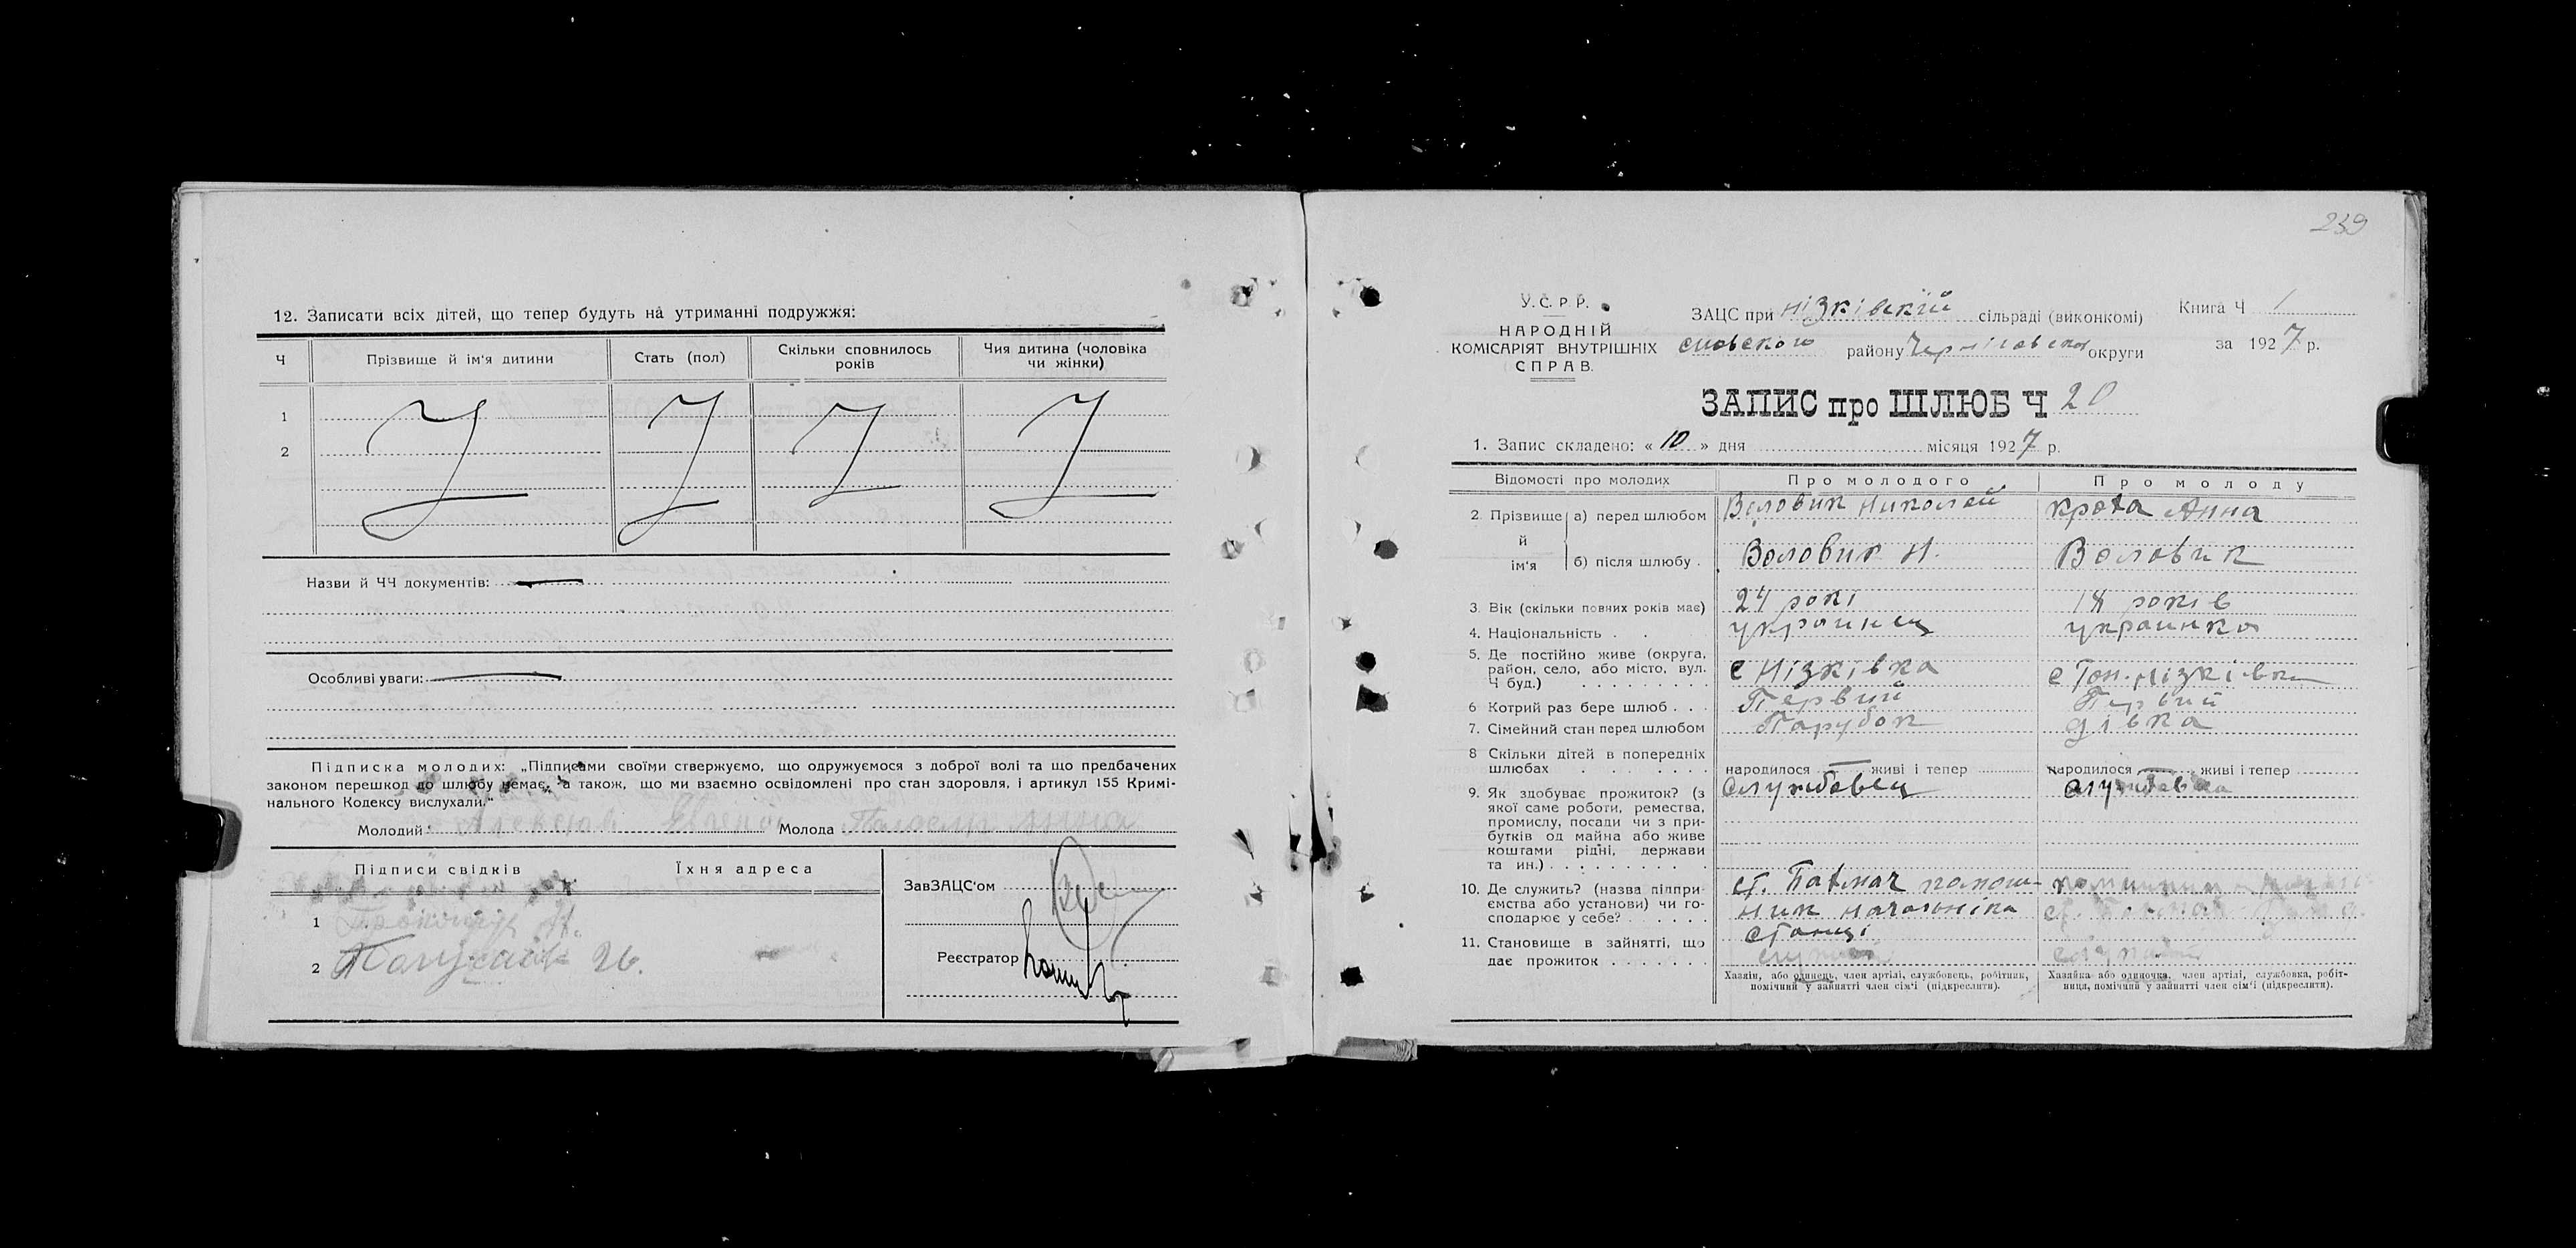 12. Записати всіх дітей, що тепер будуть на утриманні подружжя:
Ч
Прізвище й ім'я дитини
Стать (пол)
Скільки сповнилось
років
Чия дитина (чоловіка
чи жінки)
1
2
Назви й ЧЧ документів:
Особливі уваги:
Підписка молодих: „Підписами своїми ствержуємо, що одружуємося з доброї волі та що предбачених
законом перешкод до шлюбу немає, а також, що ми взаємно освідомлені про стан здоровля, і артикул 155 Кримі-
нального Кодексу вислухали."
Молодий Молода Анна
Підписи свідків Їхня адреса
1
2
ЗавЗАЦС'ом
Реєстратор
239
У.С.Р.Р.
НАРОДНІЙ
КОМІСАРІЯТ ВНУТРІШНІХ
СПРАВ.
ЗАЦС при Нізківскій сільраді (виконкомі)
сновского району округи
Книга Ч 1
за 1927 р.
ЗАПИС про ШЛЮБ Ч 20
1. Запис складено: « 10 » дня місяця 1927 р.
Відомості про молодих
Про молодого
Про молоду
2. Прізвище й ім'я
а) перед шлюбом Воловик Николай крота Анна
б) після шлюбу. Воловик Н. Воловик
3. Вік (скільки повних років має) 24 рокі 18 років
4. Національність украинец украинка
5. Де постійно живе (округа,
район, село, або місто, вул.
Ч буд.)
с Нізківка с Нізківка
6 Котрий раз бере шлюб Первий Первий
7. Сімейний стан перед шлюбом Парубок дівка
8 Скільки дітей в попередніх
шлюбах
народилося — живі і тепер народилося — живі і тепер
9. Як здобуває прожиток? (з
якої саме роботи, ремества,
промислу, посади чи з при-
бутків од майна або живе
коштами рідні, держави
та ин.)
службовец службовка
10. Де служить? (назва підпри-
ємства або установи) чи го-
сподарює у себе?
ст. Бахмач помош-
ник начальніка
станці
11. Становище в зайнятті, що
дає прожиток
Хазяїн, або одинець, член артілі, службовець, робітник,
помічний у зайнятті член сім'ї (підкреслити).
Хазяйка або одиночка, член артілі, службовка, робіт-
ниця, помічний у зайнятті член сім'ї (підкреслити).